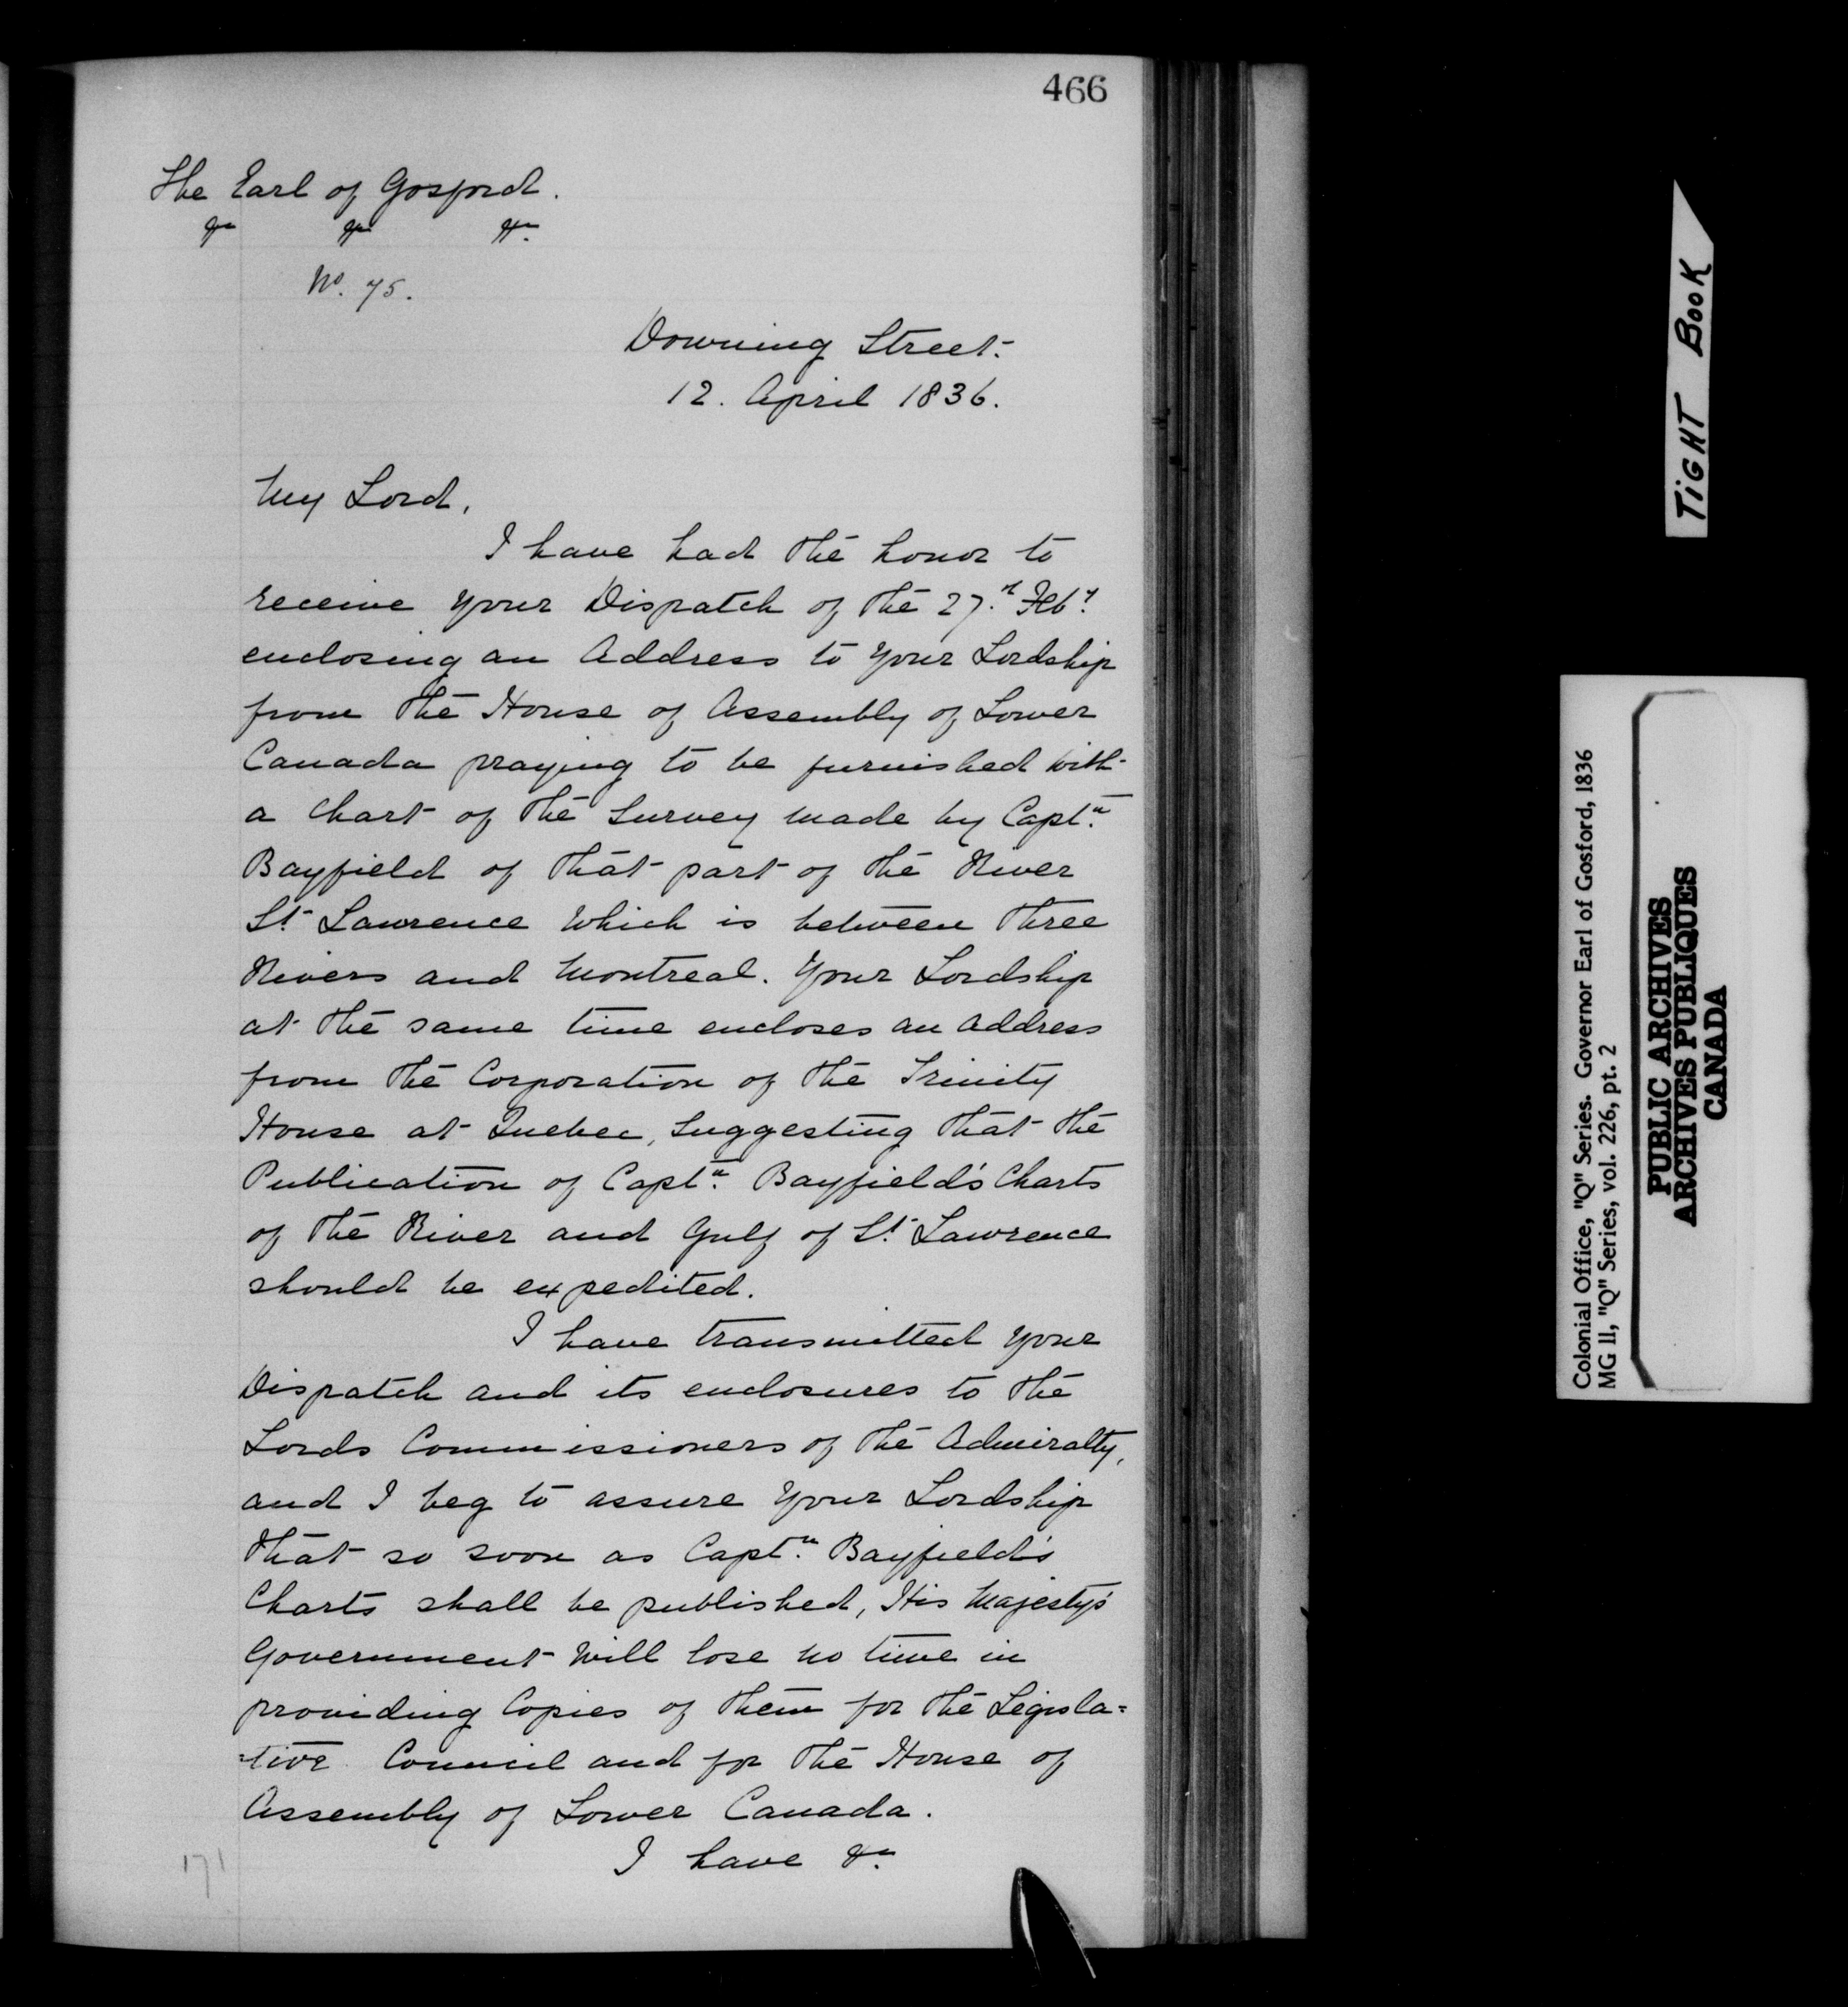 466
The Earl of Gosford.
&c &c &c.
No. 75.
Downing Street.
12. April 1836.
My Lord,
I have had the honor to
receive your Dispatch of the 27.th Feb.y
enclosing an Address to your Lordship
from the House of Assembly of Lower
Canada praying to be furnished with
a Chart of the Survey made by Capt.n
Bayfield of that part of the River
St. Lawrence which is between Three
Rivers and Montreal. Your Lordship
at the same time encloses an address
from the Corporation of the Trinity
House at Quebec, suggesting that the
Publication of Capt.n Bayfield's Charts
of the River and Gulf of St. Lawrence
should be expedited.
I have transmitted your
Dispatch and its enclosures to the
Lords Commissioners of the Admiralty,
and I beg to assure Your Lordship
that so soon as Capt.n Bayfield's
Charts shall be published, His Majesty's
Government will lose no time in
providing Copies of them for the Legisla=
=tive Council and for the House of
Assembly of Lower Canada.
I have &c.
171
TIGHT BOOK
Colonial Office, "Q" Series. Governor Earl of Gosford, 1836
MG 11, "Q" Series, vol. 226, pt. 2
PUBLIC ARCHIVES
ARCHIVES PUBLIQUES
CANADA